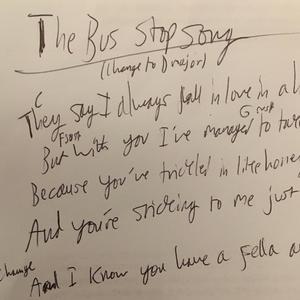 The Bus Stop Song
(Change to D major)
C
They say I always fall in love in a
Fsus4
But with you I've managed to
G
Because you've trickled in like honey
And you're sticking to me just
Change
And I know you have a fella